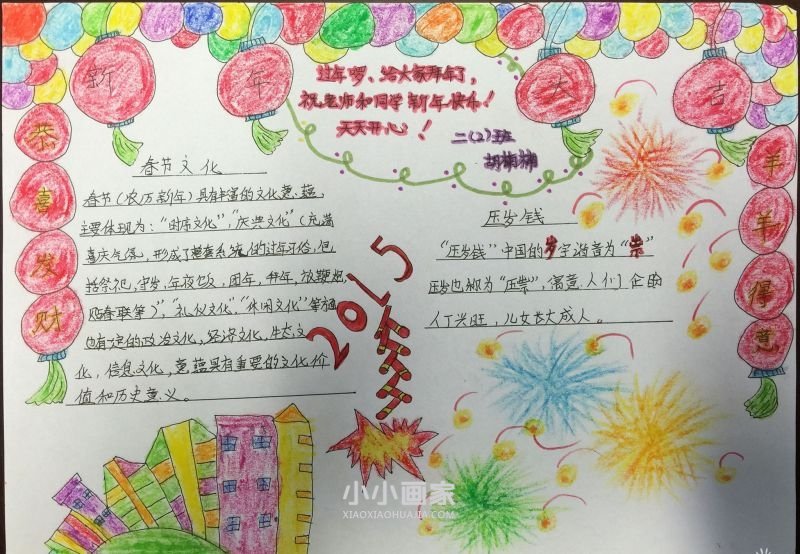 新年大吉
过年啰、给大家拜年了,
祝老师和同学新年快乐!
天天开心!
二(2)班
恭喜发财
羊羊得意
春节文化
春节(农历新年)具有丰富的文化意蕴,
主要体现为:"时序文化","庆典文化"(充满
喜庆气氛,形成了整套系统的过年习俗,包
括祭祀,守岁,年夜饭,团年,拜年,放鞭炮,
贴春联等),"礼仪文化""休闲文化"等
也有一定的政治文化,经济文化,生态文
化,信息文化,意蕴具有重要的文化价
值和历史意义。
2015
压岁钱
"压岁钱"中国的岁字谐音为"祟"
压岁也称为"压祟",寓意人们企盼
人丁兴旺,儿女长大成人。
小小画家
XIAOXIAOHUAJIA.COM